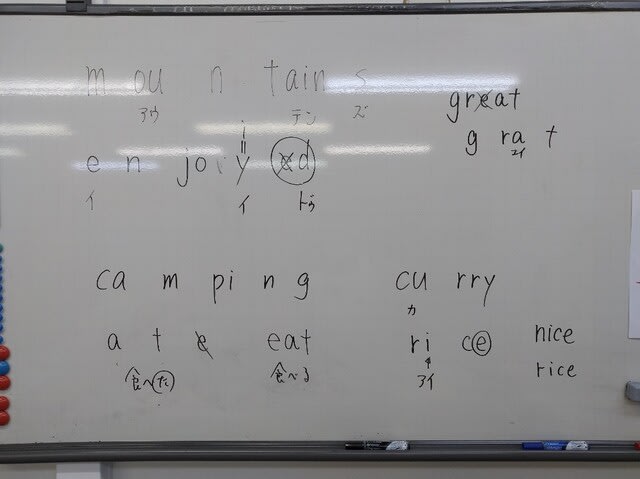 m ou n tain s
アウ テン ズ
great
g ra t
エイ
i
e n jo y ed
イ イ ドゥ
ca m pi n g
cu rry
カ
a t e eat
食べた 食べる
ri ce
アイ
nice
rice